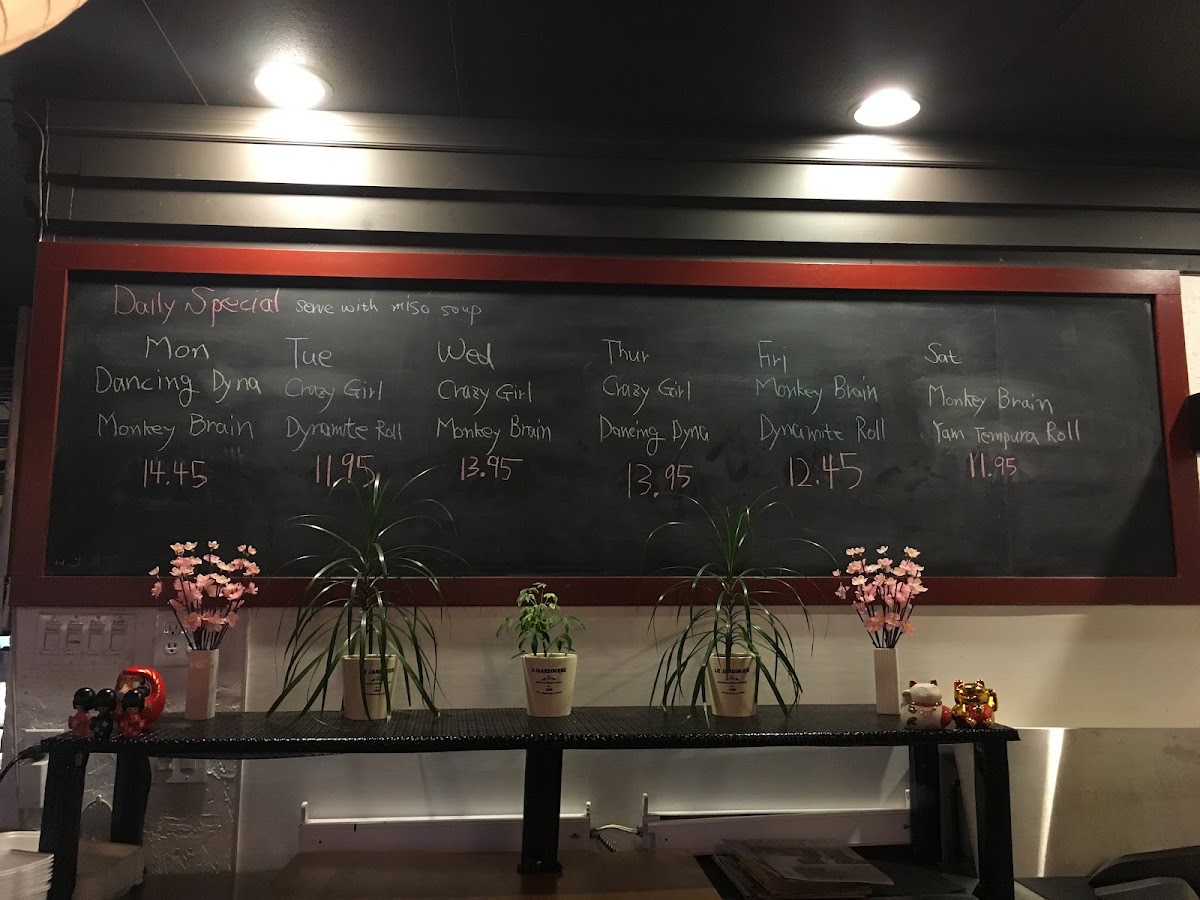 Daily Special serve with miso soup
Mon
Dancing Dyna
Monkey Brain
14.45
Tue
Crazy Girl
Dynamite Roll
11.95
Wed
Crazy Girl
Monkey Brain
13.95
Thur
Crazy Girl
Dancing Dyna
13.95
Fri
Monkey Brain
Dynamite Roll
12.45
Sat
Monkey Brain
Yam Tempura Roll
11.95
LE JARDINIERE